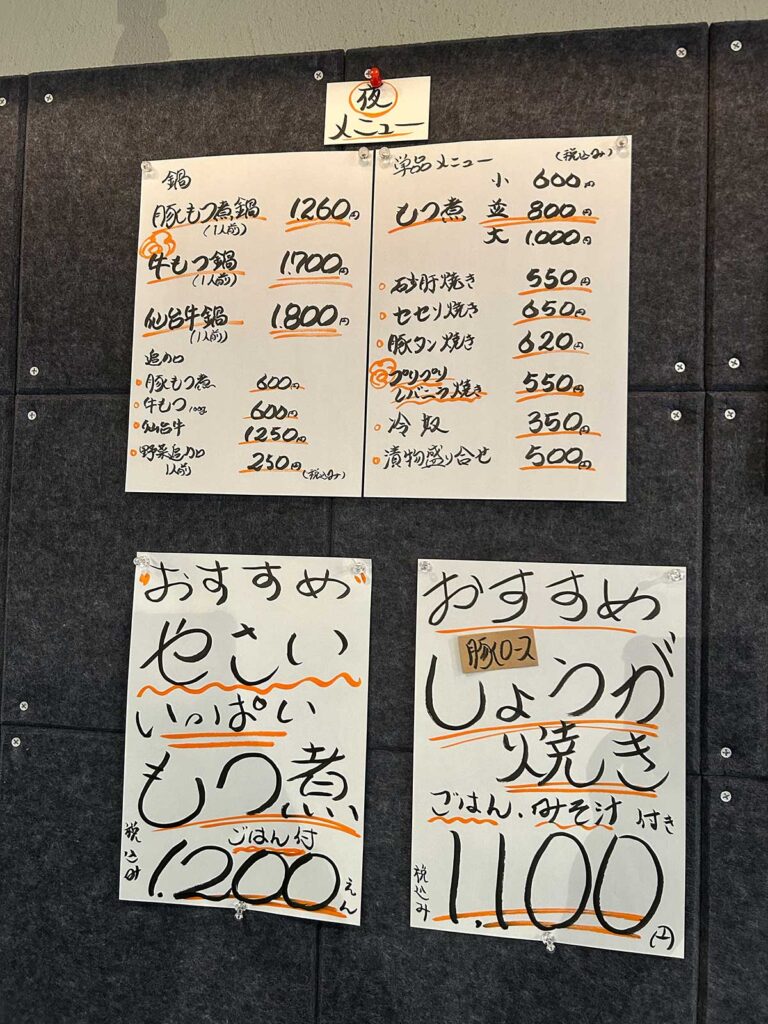 夜
メニュー
鍋
豚もつ煮鍋 1.260円
(1人前)
牛もつ鍋 1.700円
(1人前)
仙台牛鍋 1.800円
(1人前)
追加
・豚もつ煮 600円
・牛もつ 100g 600円
・仙台牛 1250円
・野菜追加 250円
1人前 (税込み)
単品メニュー (税込み)
小 600円
もつ煮 並 800円
大 1.000円
・砂肝焼き 550円
・セセリ焼き 650円
・豚タン焼き 620円
プリプリ
レバニラ焼き 550円
・冷奴 350円
・漬物盛り合せ 500円
おすすめ
やさい
いっぱい
もつ煮
ごはん付
税込み 1.200えん
おすすめ
豚ロース
しょうが
焼き
ごはん.みそ汁付き
税込み 1.100円